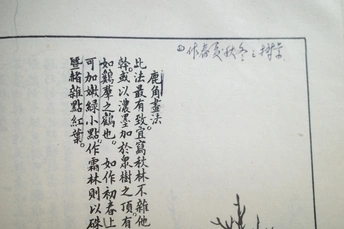 鹿角畫法。
此法最有致宜寫秋林不雜他
幹。或以濃墨加於衆樹之頂有
如鷄羣之鶴也。如作初春上
可加嫩綠小點。作霜林則以硃
曁赭雜點紅葉。